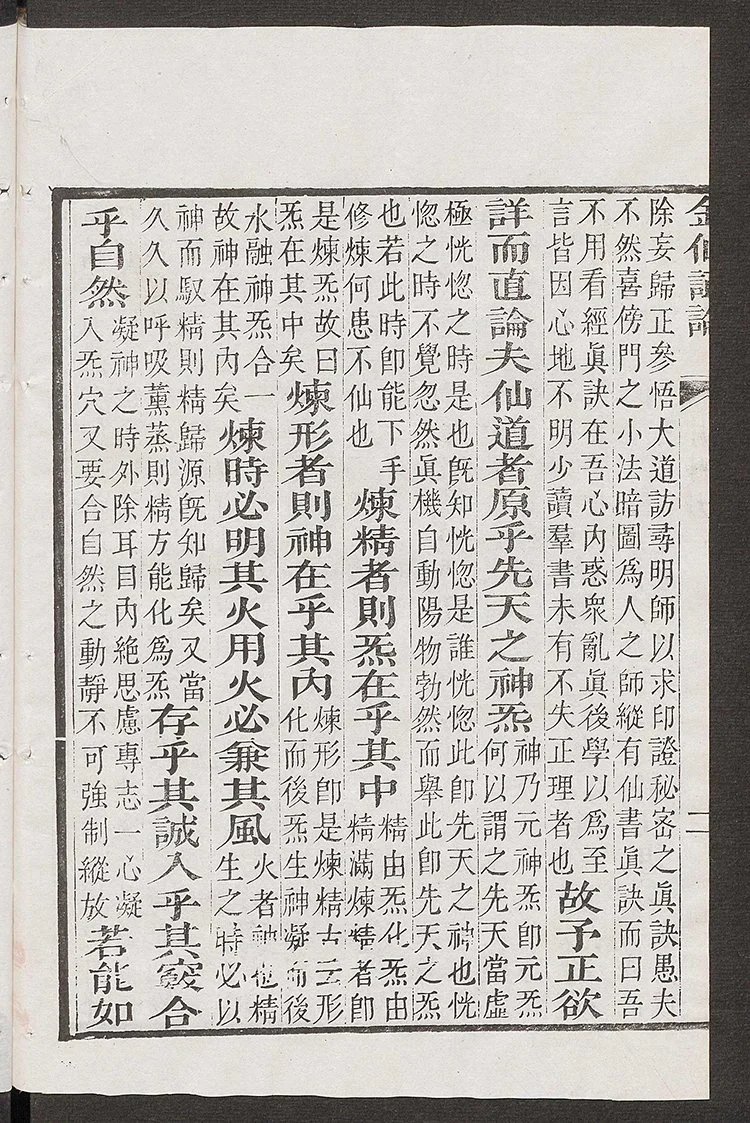 金仙證論
二
除妄歸正參悟大道訪尋明師以求印證秘密之眞訣愚夫
不然喜傍門之小法暗圖爲人之師縱有仙書眞訣而曰吾
不用看經眞訣在吾心內惑衆亂眞後學以爲至
言皆因心地不明少讀羣書未有不失正理者也
故予正欲
詳而直論夫仙道者原乎先天之神炁
神乃元神炁卽元炁
何以謂之先天當虛
極恍惚之時是也旣知恍惚是誰恍惚此卽先天之神也恍
惚之時不覺忽然眞機自動陽物勃然而舉此卽先天之炁
也若此時卽能下手
修煉何患不仙也
煉精者則炁在乎其中
精由炁化炁由
精滿煉精者卽
是煉炁故曰
炁在其中矣
煉形者則神在乎其內
煉形卽是煉精古云形
化而後炁生神凝而後
水融神炁合一
故神在其內矣
煉時必明其火用火必兼其風
火者神也精
生之時必以
神而馭精則精歸源旣知歸矣又當
久久以呼吸薰蒸則精方能化爲炁
存乎其誠入乎其竅合
乎自然
凝神之時外除耳目內絕思慮專志一心凝
入炁穴又要合自然之動靜不可強制縱放
若能如